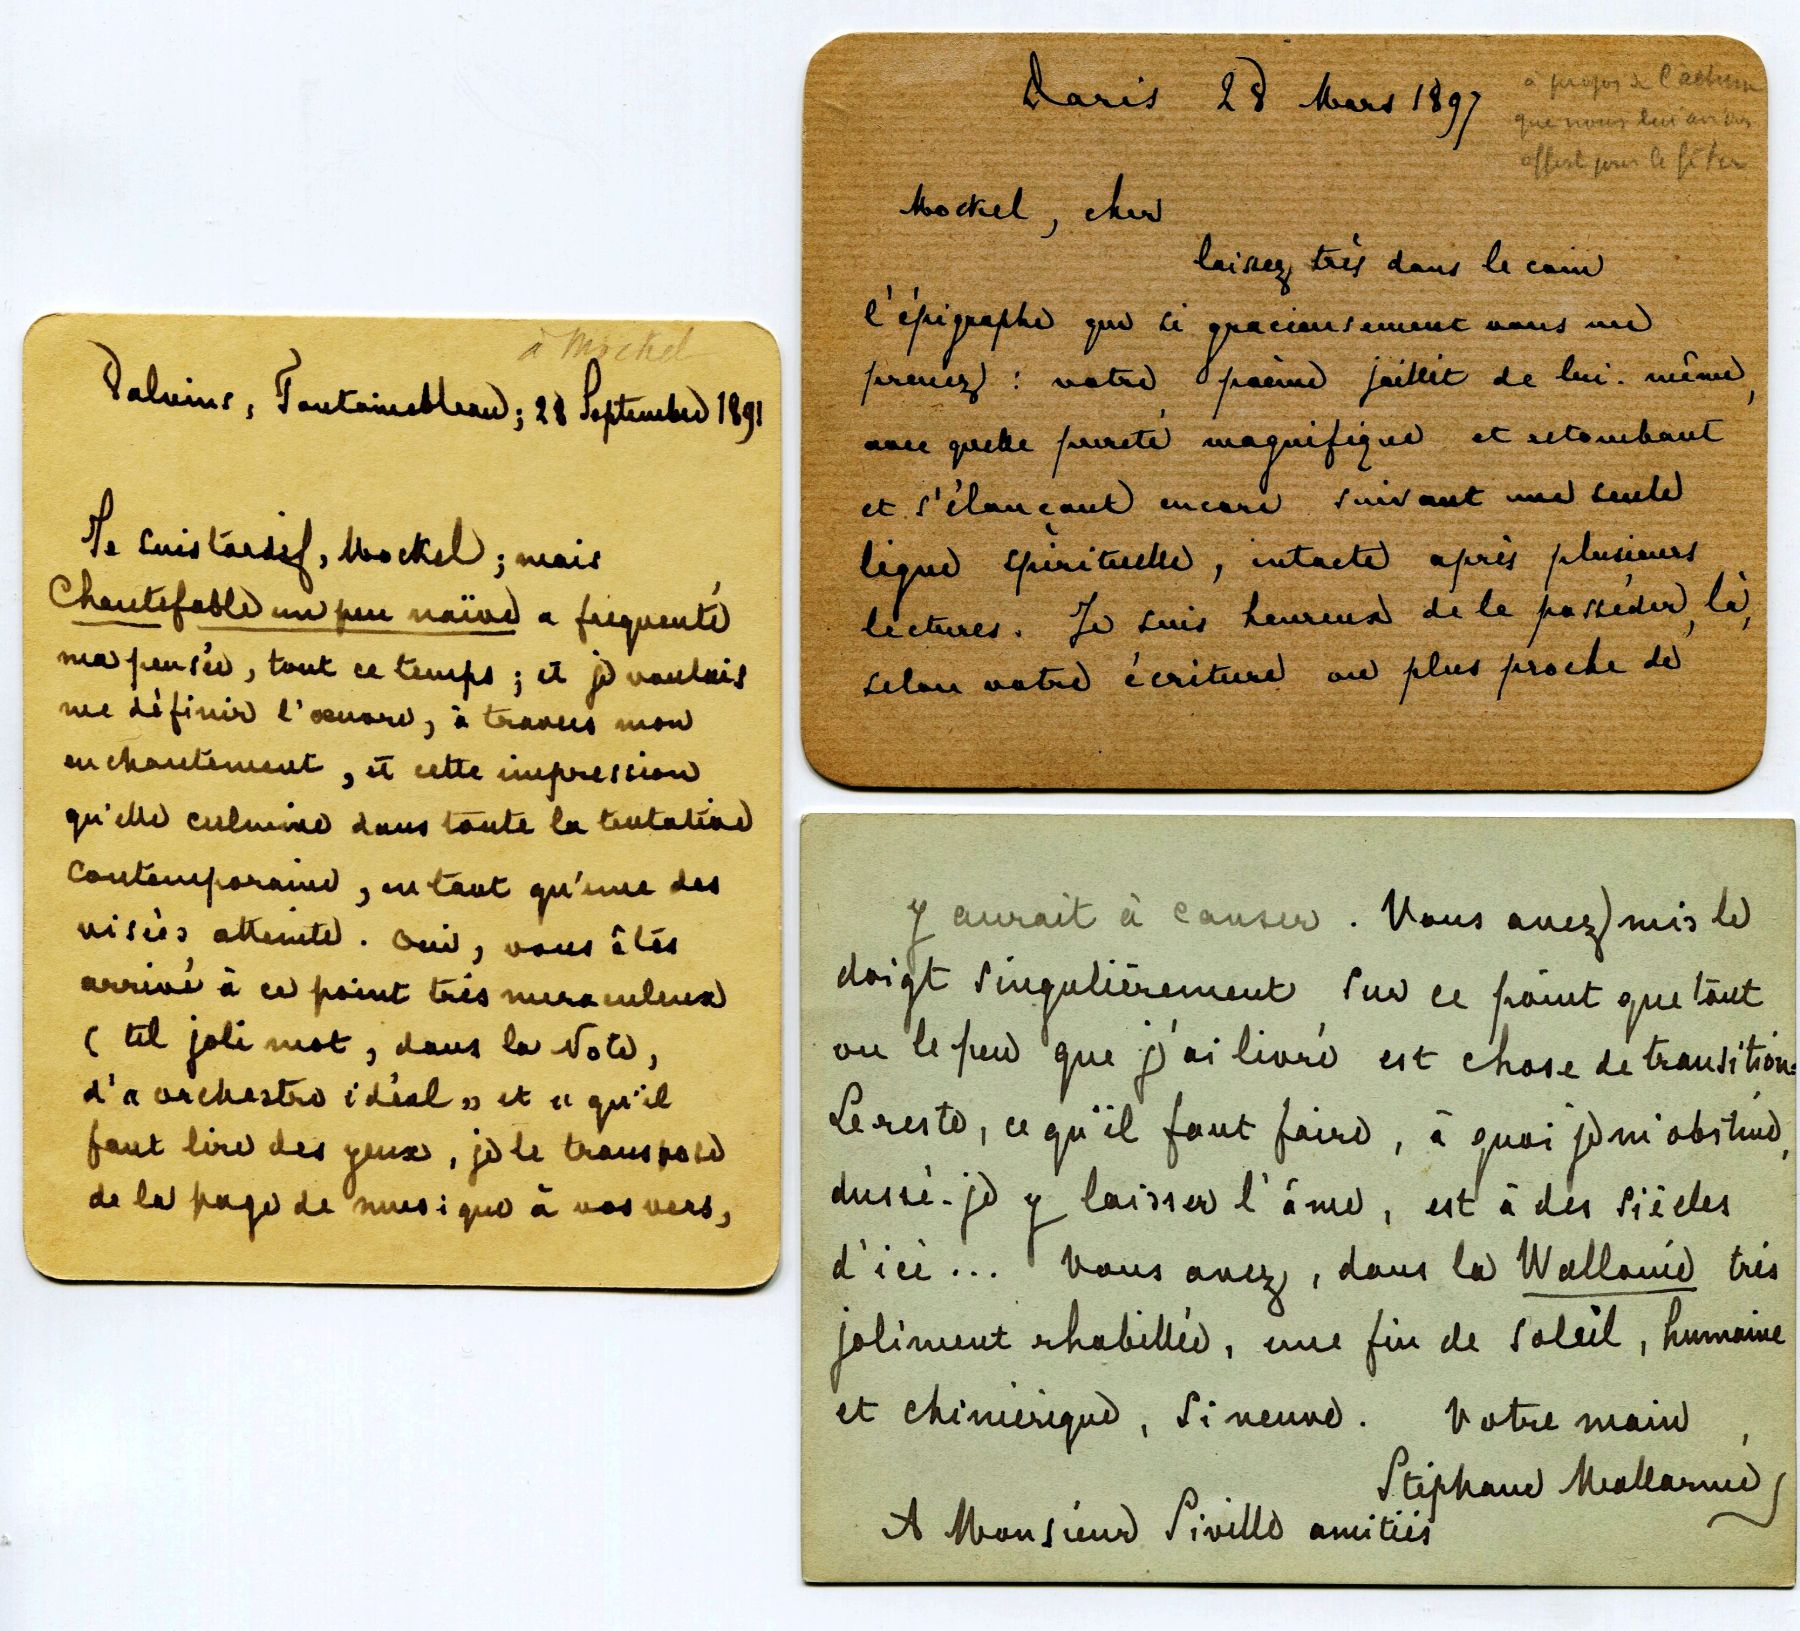 à Mockel
Valvins, Fontainebleau; 28 Septembre 1891
Je suis tardif, Mockel ; mais
Chantefable un peu naïve a fréquenté
ma pensée, tout ce temps ; et je voulais
me définir l'œuvre, à travers mon
enchantement, et cette impression
qu'elle culmine dans toute la tentative
contemporaine, en tant qu'une des
visées atteinte. Oui, vous êtes
arrivé à ce point très miraculeux
( tel joli mot, dans la Note,
d'« orchestre idéal » et « qu'il
faut lire des yeux, je le transpose
de la page de musique à vos vers,
Paris 28 Mars 1897
à propos de l'album
que nous lui avions
offert pour le fêter
Mockel, cher
laissez très dans le coin
l'épigraphe que si gracieusement vous me
prenez : votre poème jaillit de lui-même,
avec quelle pureté magnifique et retombant
et s'élançant encore suivant une seule
ligne spirituelle, intacte après plusieurs
lectures. Je suis heureux de le posséder, là,
selon votre écriture ou plus proche de
y aurait à causer. Vous avez mis le
doigt singulièrement sur ce point que tout
ou le peu que j'ai livré est chose de transition.
Le reste, ce qu'il faut faire, à quoi je m'obstine,
dussé-je y laisser l'âme, est à des siècles
d'ici... Vous avez, dans la Wallonie très
joliment rhabillée, une fin de soleil, humaine
et chimérique, si neuve. Votre main,
Stéphane Mallarmé
A Monsieur Siville amitiés